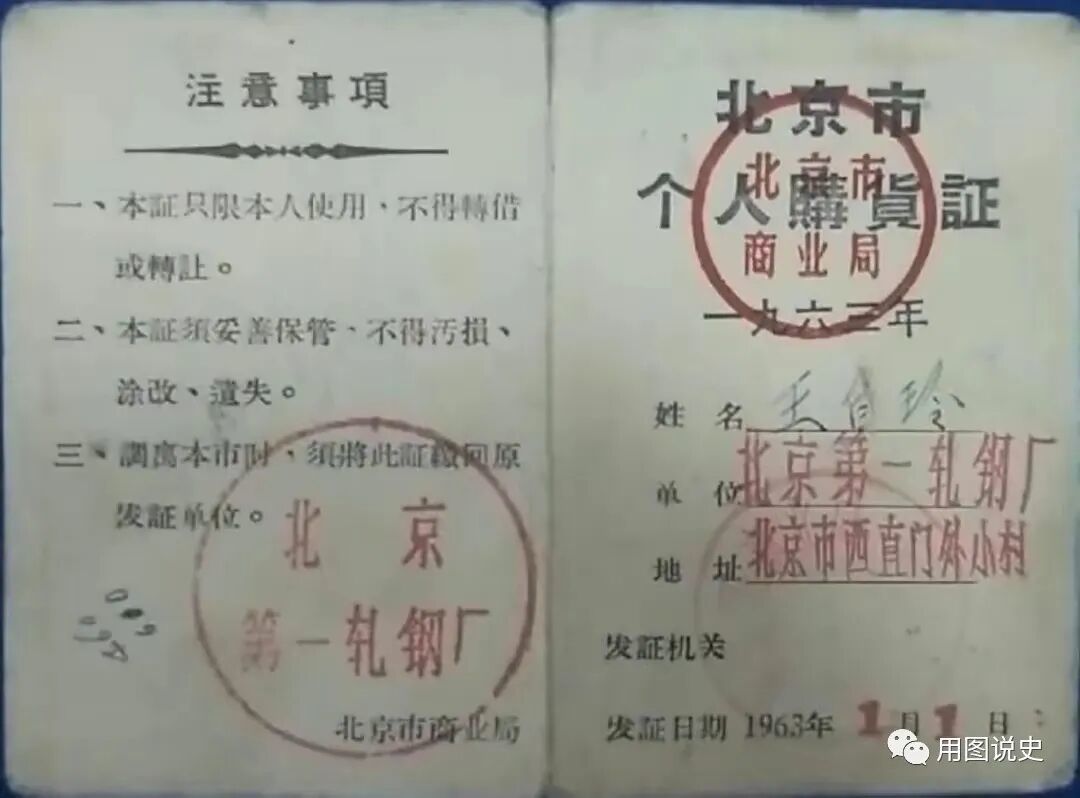 注意事項
一、本証只限本人使用、不得轉借
或轉让。
二、本証須妥善保管、不得汚損、
涂改、遺失。
三、調离本市时、須將此証繳回原
发証单位。
北京
第一轧钢厂
北京市商业局
北京市
个人購貨証
北京市
商业局
一九六三年
姓名 王 玲
单位 北京第一轧钢厂
地址 北京市西直门外小村
发証机关
发証日期 1963年 1月1日
用图说史